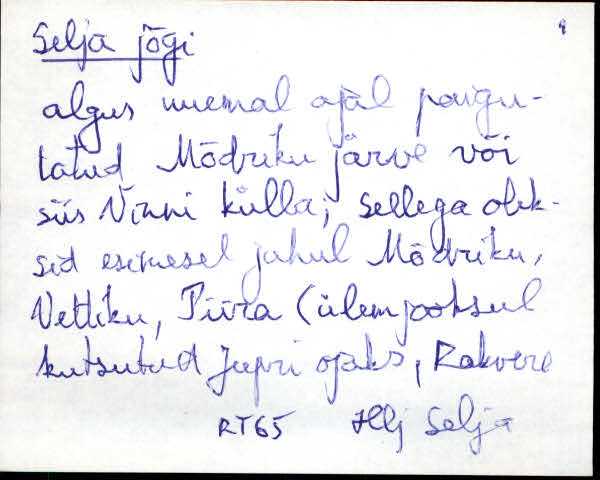 Selja jõgi
algus nuemal ajal paigu-
tatud Mõdriku järve või
siis Vinni külla; sellega olek-
sid esimesel juhul Mõdriku,
Vettiku, Piira (ülemjooksul
kutsutud Jupri ojaks, Rakvere
RT65 Hlj Selja